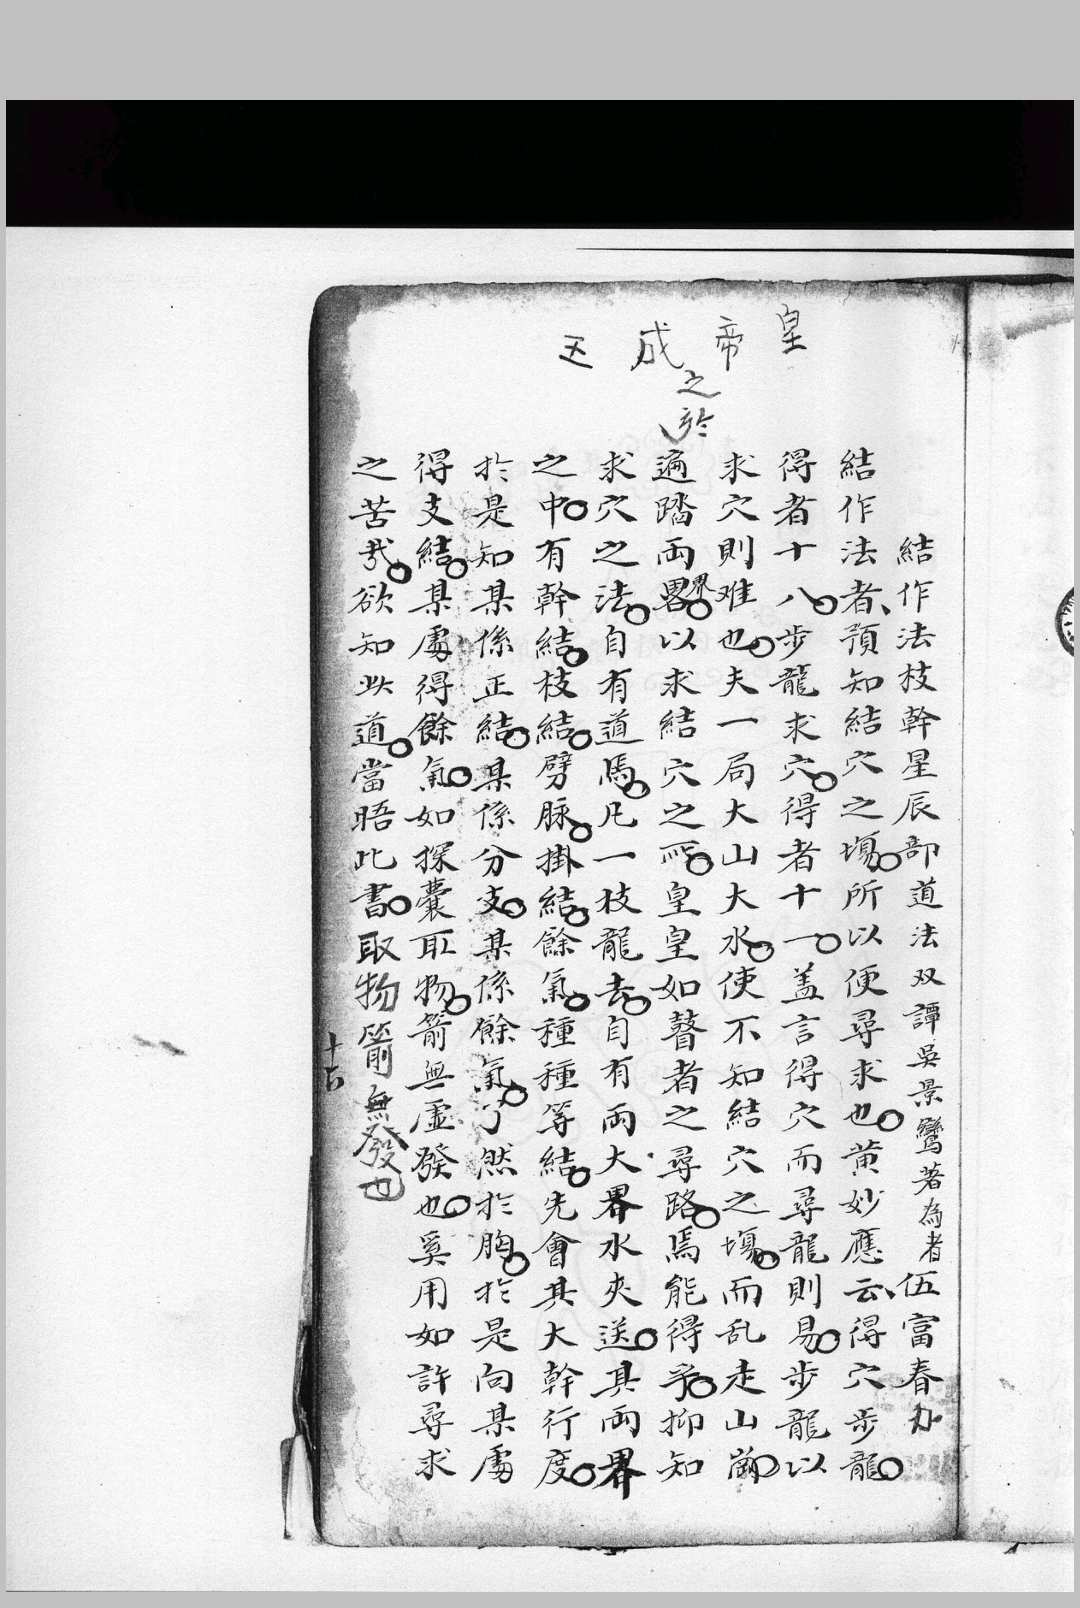 皇帝成王
之於
結作法枝幹星辰部道法双譚吳景鸞著為者伍富春办
結作法者預知結穴之塲所以便尋求也黄妙應云得穴步龍
得者十八步龍求穴得者十一盖言得穴而尋龍則易步龍以
求穴則难也夫一局大山大水使不知結穴之塲而乱走山
遍踏両畧界以求結穴之所皇皇如瞽者之尋路焉能得乎抑知
求穴之法自有道焉凡一枝龍去自有両大界水夾送其両界
之中有幹結枝結劈脉掛結餘氣種種等結先會其大幹行度
於是知某係正結某係分支某係餘氣了然於胸於是向某處
得支結某處得餘氣如探囊取物箭無虛發也奚用如許尋求
之苦㢤欲知此道當晤此書取物箭無發也